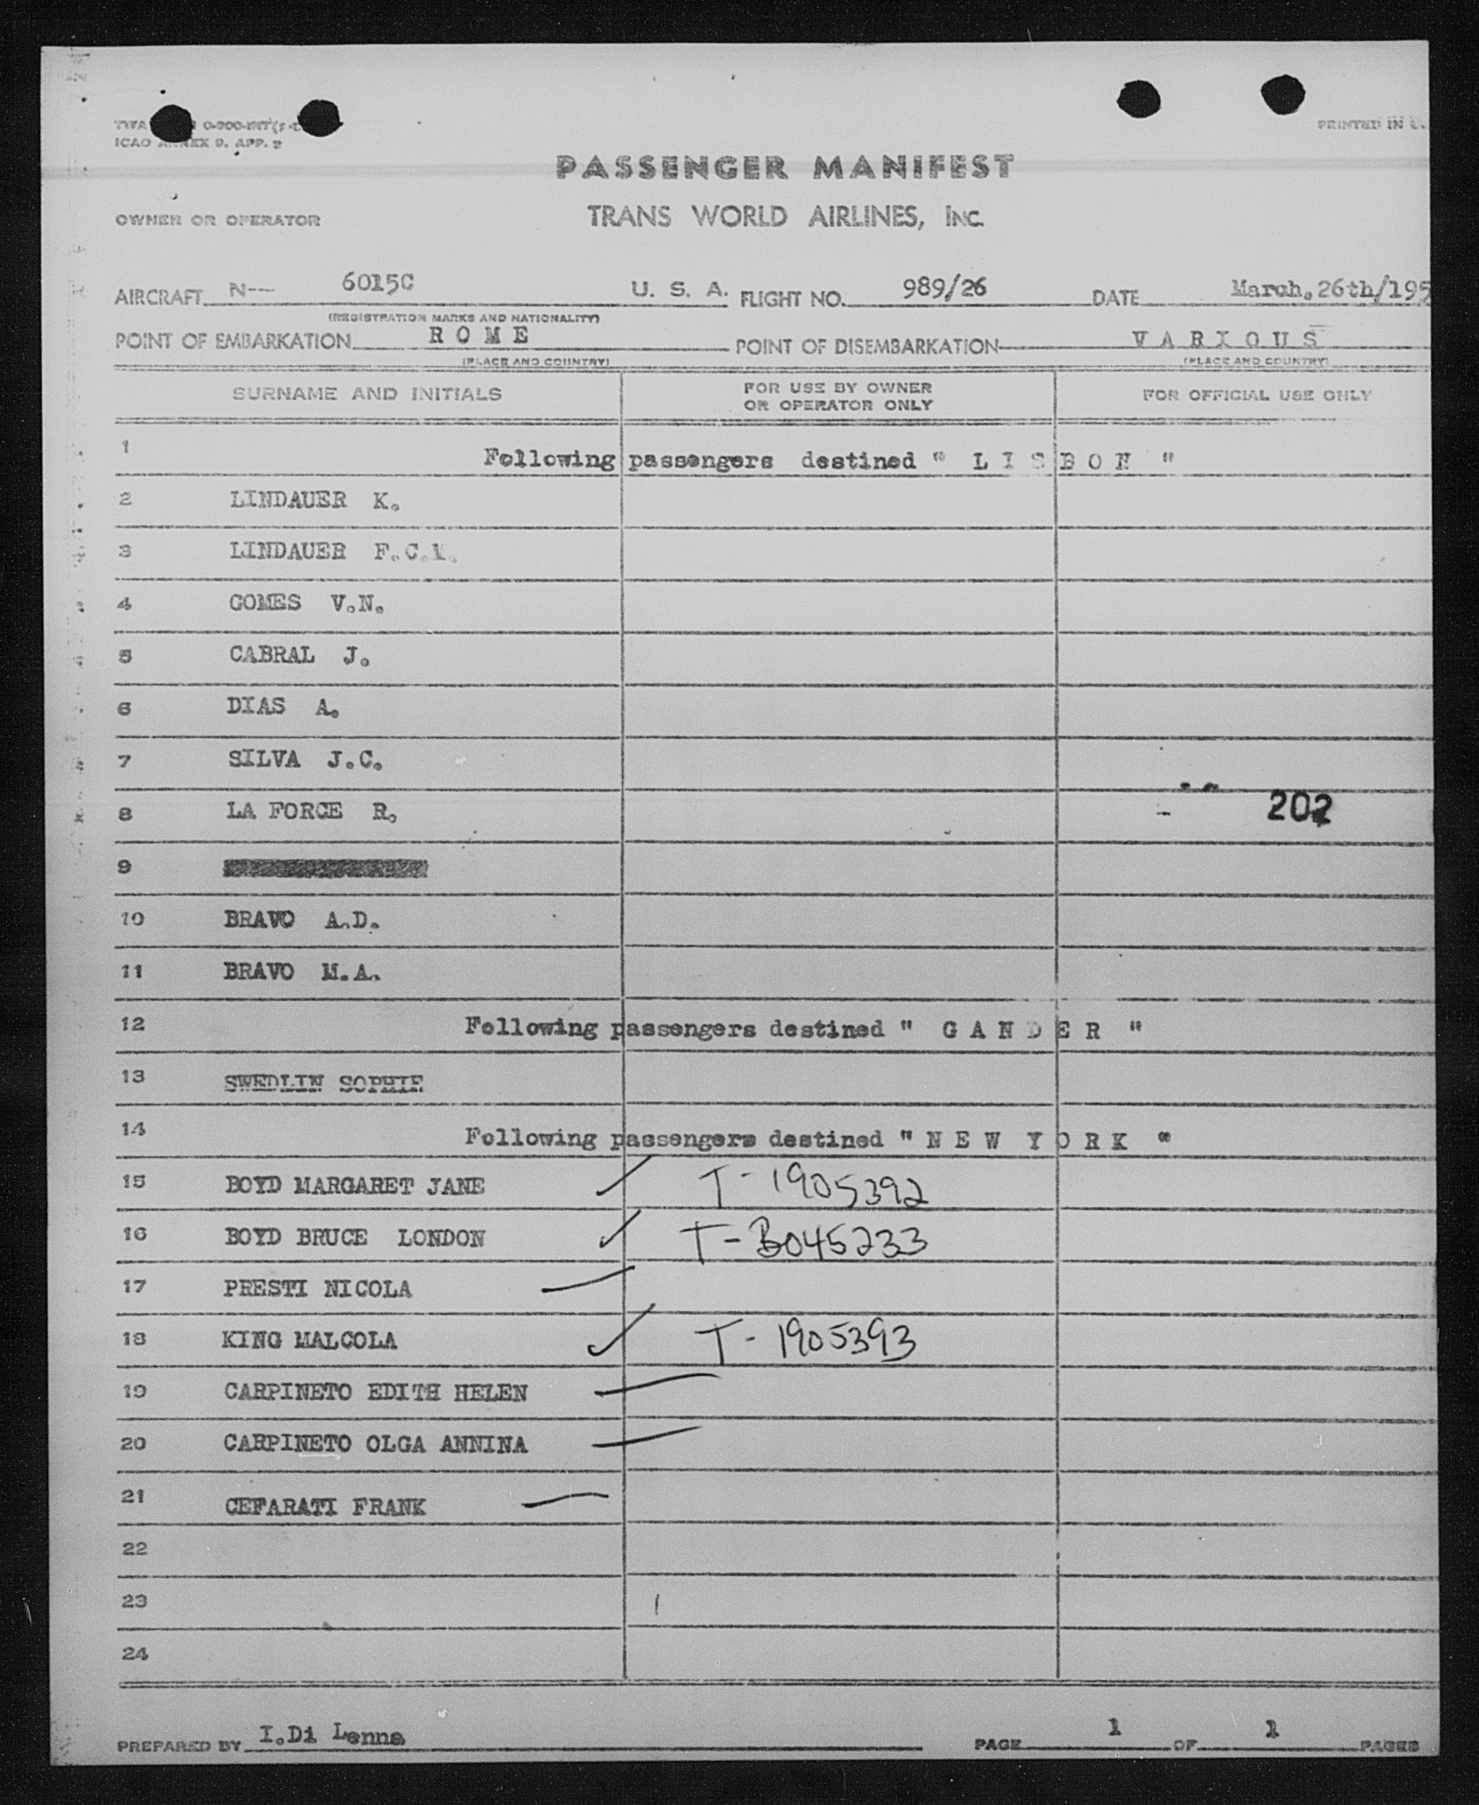 ICAO ANNEX 9, APP. 2
PRINTED IN U.
PASSENGER MANIFEST
OWNER OR OPERATOR TRANS WORLD AIRLINES, INC.
AIRCRAFT N-- 6015C U. S. A. FLIGHT NO. 989/26 DATE March.26th/195
(REGISTRATION MARKS AND NATIONALITY)
POINT OF EMBARKATION R O M E POINT OF DISEMBARKATION V A R I O U S
(PLACE AND COUNTRY) (PLACE AND COUNTRY)
SURNAME AND INITIALS FOR USE BY OWNER OR OPERATOR ONLY FOR OFFICIAL USE ONLY
1 Following passengers destined " L I S B O N "
2 LINDAUER K.
3 LINDAUER F.C.
4 GOMES V.N.
5 CABRAL J.
6 DIAS A.
7 SILVA J.C.
8 LA FORCE R. 202
9
10 BRAVO A.D.
11 BRAVO M.A.
12 Following passengers destined " G A N D E R "
13 SWEDLIN SOPHIE
14 Following passengers destined " N E W Y O R K "
15 BOYD MARGARET JANE ✓ T-1905392
16 BOYD BRUCE LONDON ✓ T-B045233
17 PRESTI NICOLA —
18 KING MALCOLA ✓ T-1905393
19 CARPINETO EDITH HELEN —
20 CARPINETO OLGA ANNINA —
21 CEFARATI FRANK —
22
23
24
PREPARED BY I.Di Lenna PAGE 1 OF 1 PAGES